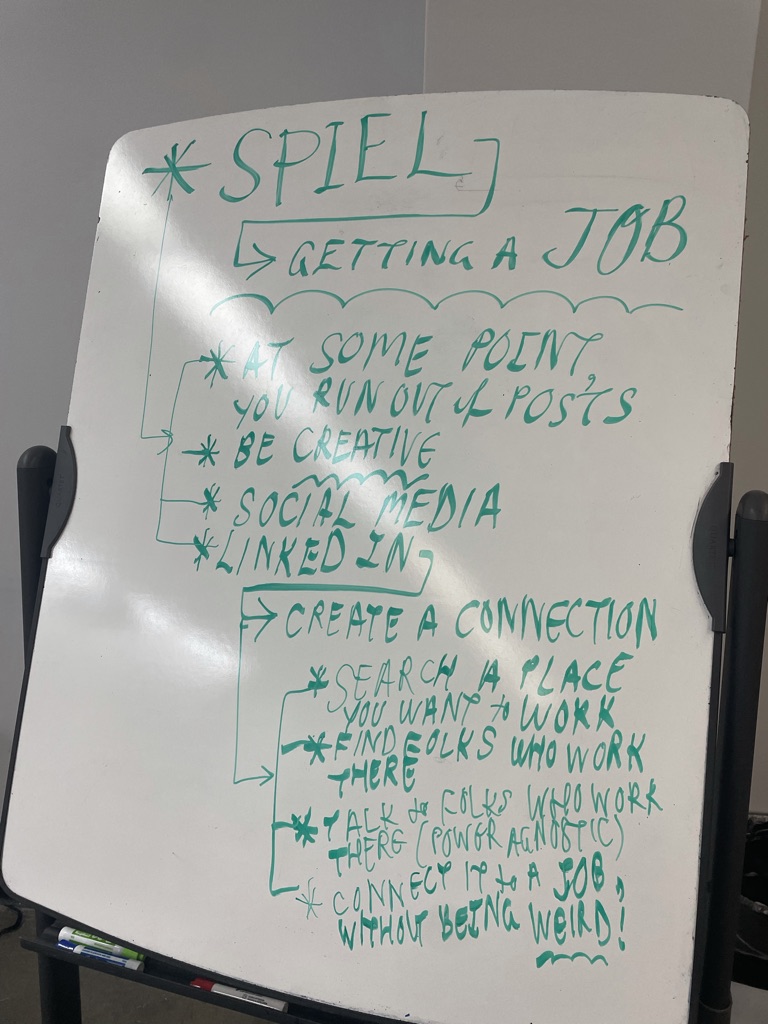 * SPIEL
GETTING A JOB
* AT SOME POINT,
YOU RUN OUT of POSTS
* BE CREATIVE
* SOCIAL MEDIA
* LINKED IN
CREATE A CONNECTION
* SEARCH A PLACE
YOU WANT to WORK
* FIND FOLKS WHO WORK
THERE
* TALK to FOLKS WHO WORK
THERE (POWER AGNOSTIC)
* CONNECT IT to A JOB,
WITHOUT BEING WEIRD!